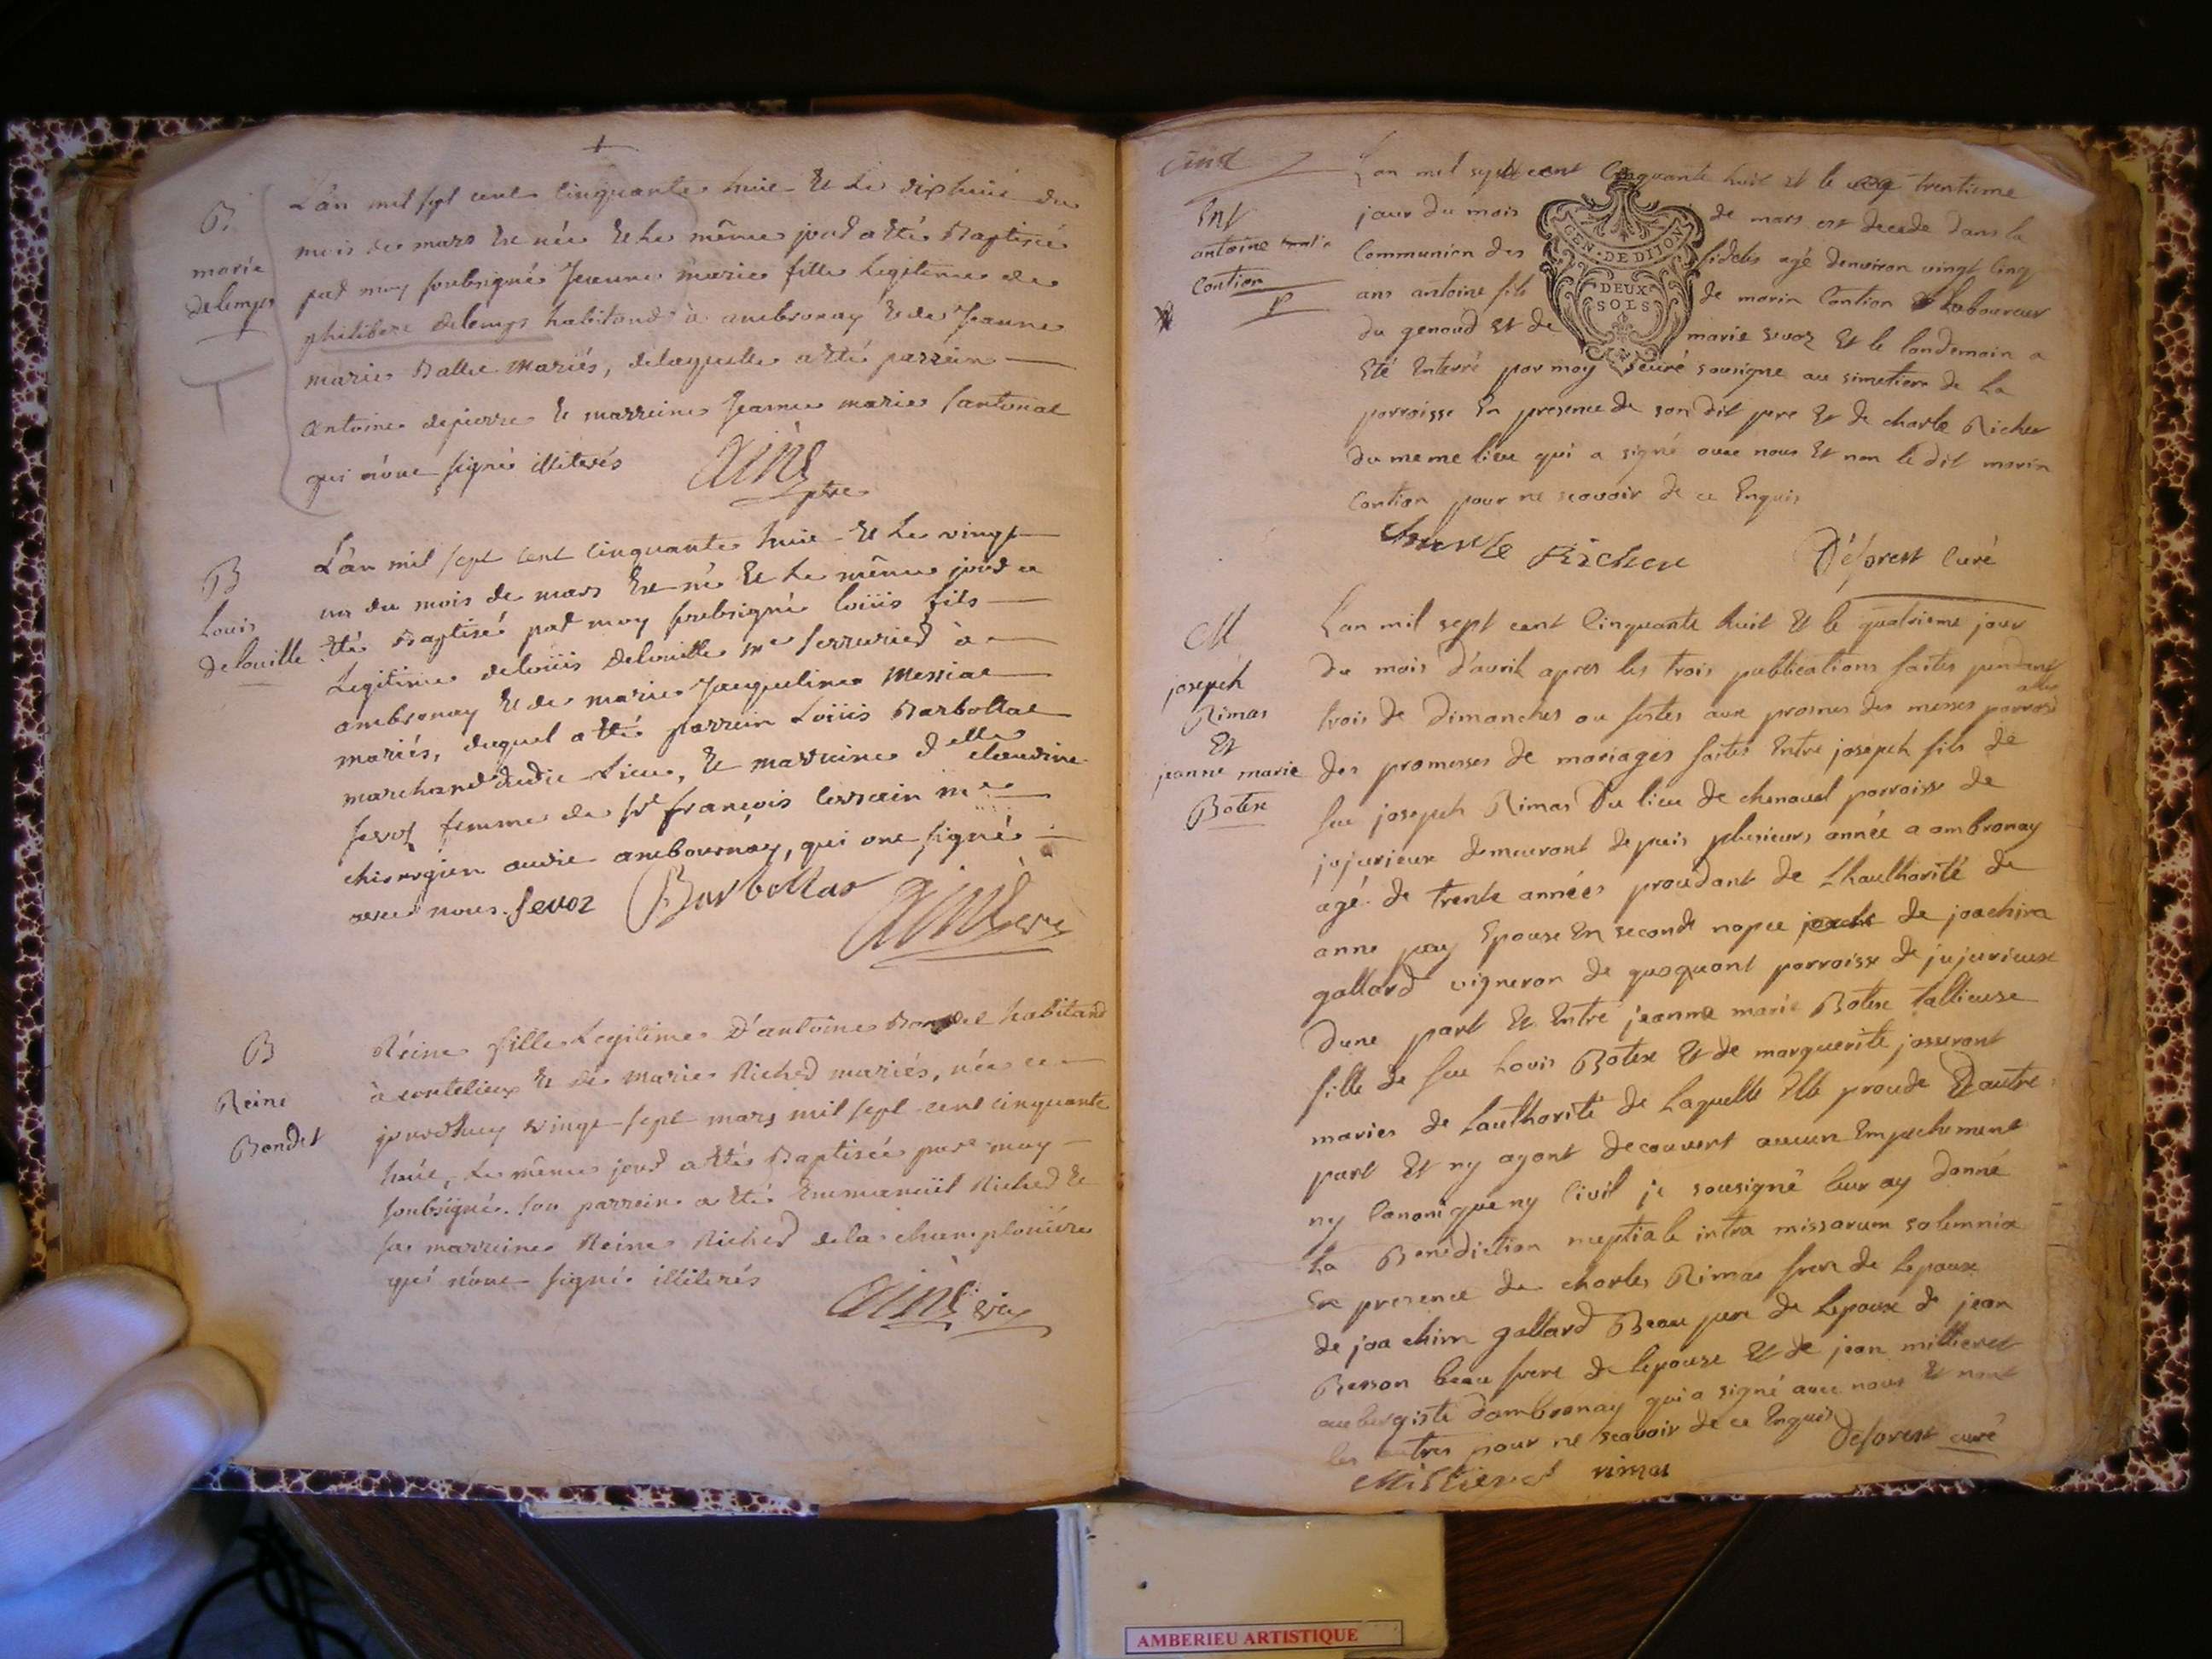 B
marie
delemps
L'an mil sept cent cinquante huit Et Le dixhuit du
mois de mars Est née Et Le même jour a Eté Baptisée
par moy soubsigné Jeanne marie fille Legitime de
philibert delemps habitand à ambronay Et de Jeanne
marie Ballet Mariés, delaquelle a Eté parrein
antoine depierre Et marreine Jeanne marie
qui n'ont signé illiterés
B
Louis
delouille
L'an mil sept cent cinquante huit Et Le vingt
un du mois de mars Est né Et Le même jour a
Eté Baptisé par moy soubsigné loüis fils
Legitime deloüis Delouille me serrurier à
ambronay Et de marie Jacqueline Messiat
mariés, duquel a Eté parrein Loüis Barbollat
marchand dudit Lieu, Et marreine delle claudine
sevoz femme de sr françois me
chirurgien audit ambournay, qui ont signé
avec nous. Sevoz Barbollat
B
Reine
Bondet
Réine fille Legitime D'antoine Bondet habitand
à Et de Marie Richer mariés, née ce
jourdhuy vingt-sept mars mil sept cent cinquante
huit, Le même jour a Eté Baptisée par moy
soubsigné. son parrein a Eté Emmanuël Richer Et
sa marreine Reine Richer dela
qui n'ont signé illiterés
Ent
antoine
Contion
L'an mil sept cent Cinquante huit Et le trentieme
jour du mois de mars est decede dans la
Communion des fideles agé denviron vingt Cinq
ans antoine fils de morin Contion Laboureur
du genoud Et de marie sevoz Et le landemain a
Eté Enterré par moy curé sousigne au simetiere de La
parroisse En presence de son dit pere Et de charle Richer
du meme lieu qui a signé avec nous Et non le dit morin
Contion pour ne scavoir de ce Enquis
GEN. DE DIJON
DEUX
SOLS
Charle Richer Deforest Curé
M
joseph
Rimas
Et
jeanne marie
Botex
L'an mil sept cent Cinquante huit Et le quatrieme jour
du mois d'avril apres les trois publications faites pendant
trois de dimanches ou festes aux prosnes des messes parroissialles
des promesses de mariages faites Entre joseph fils de
feu joseph Rimas du lieu de chenavel parroisse de
jujurieux demeurant depuis plusieurs année a ambronay
agé de trente années proudant de Lhauthorité de
anne Epouse En seconde nopce de joachim
gallard vigneron de parroisse de jujurieux
dune part Et Entre jeanne marie Botex tallieuse
fille de feu Louis Botex Et de marguerite josserant
maries de Lauthorité de Laquelle Elle proude Dautre
part Et ny ayant decouvert aucun Empechement
ny Canonique ny Civil je sousigné leur ay donné
La Benediction nuptiale intra missarum solemnia
En presence de charles Rimas frere de Lepoux
de joachim gallard Beau pere de Lepoux de jean
Besson beau frere de Lepouse Et de jean millieret
aubergiste dambronay qui a signé avec nous Et non
les autres pour ne scavoir de ce Enquis Deforest curé
Millieret rimas
AMBERIEU ARTISTIQUE